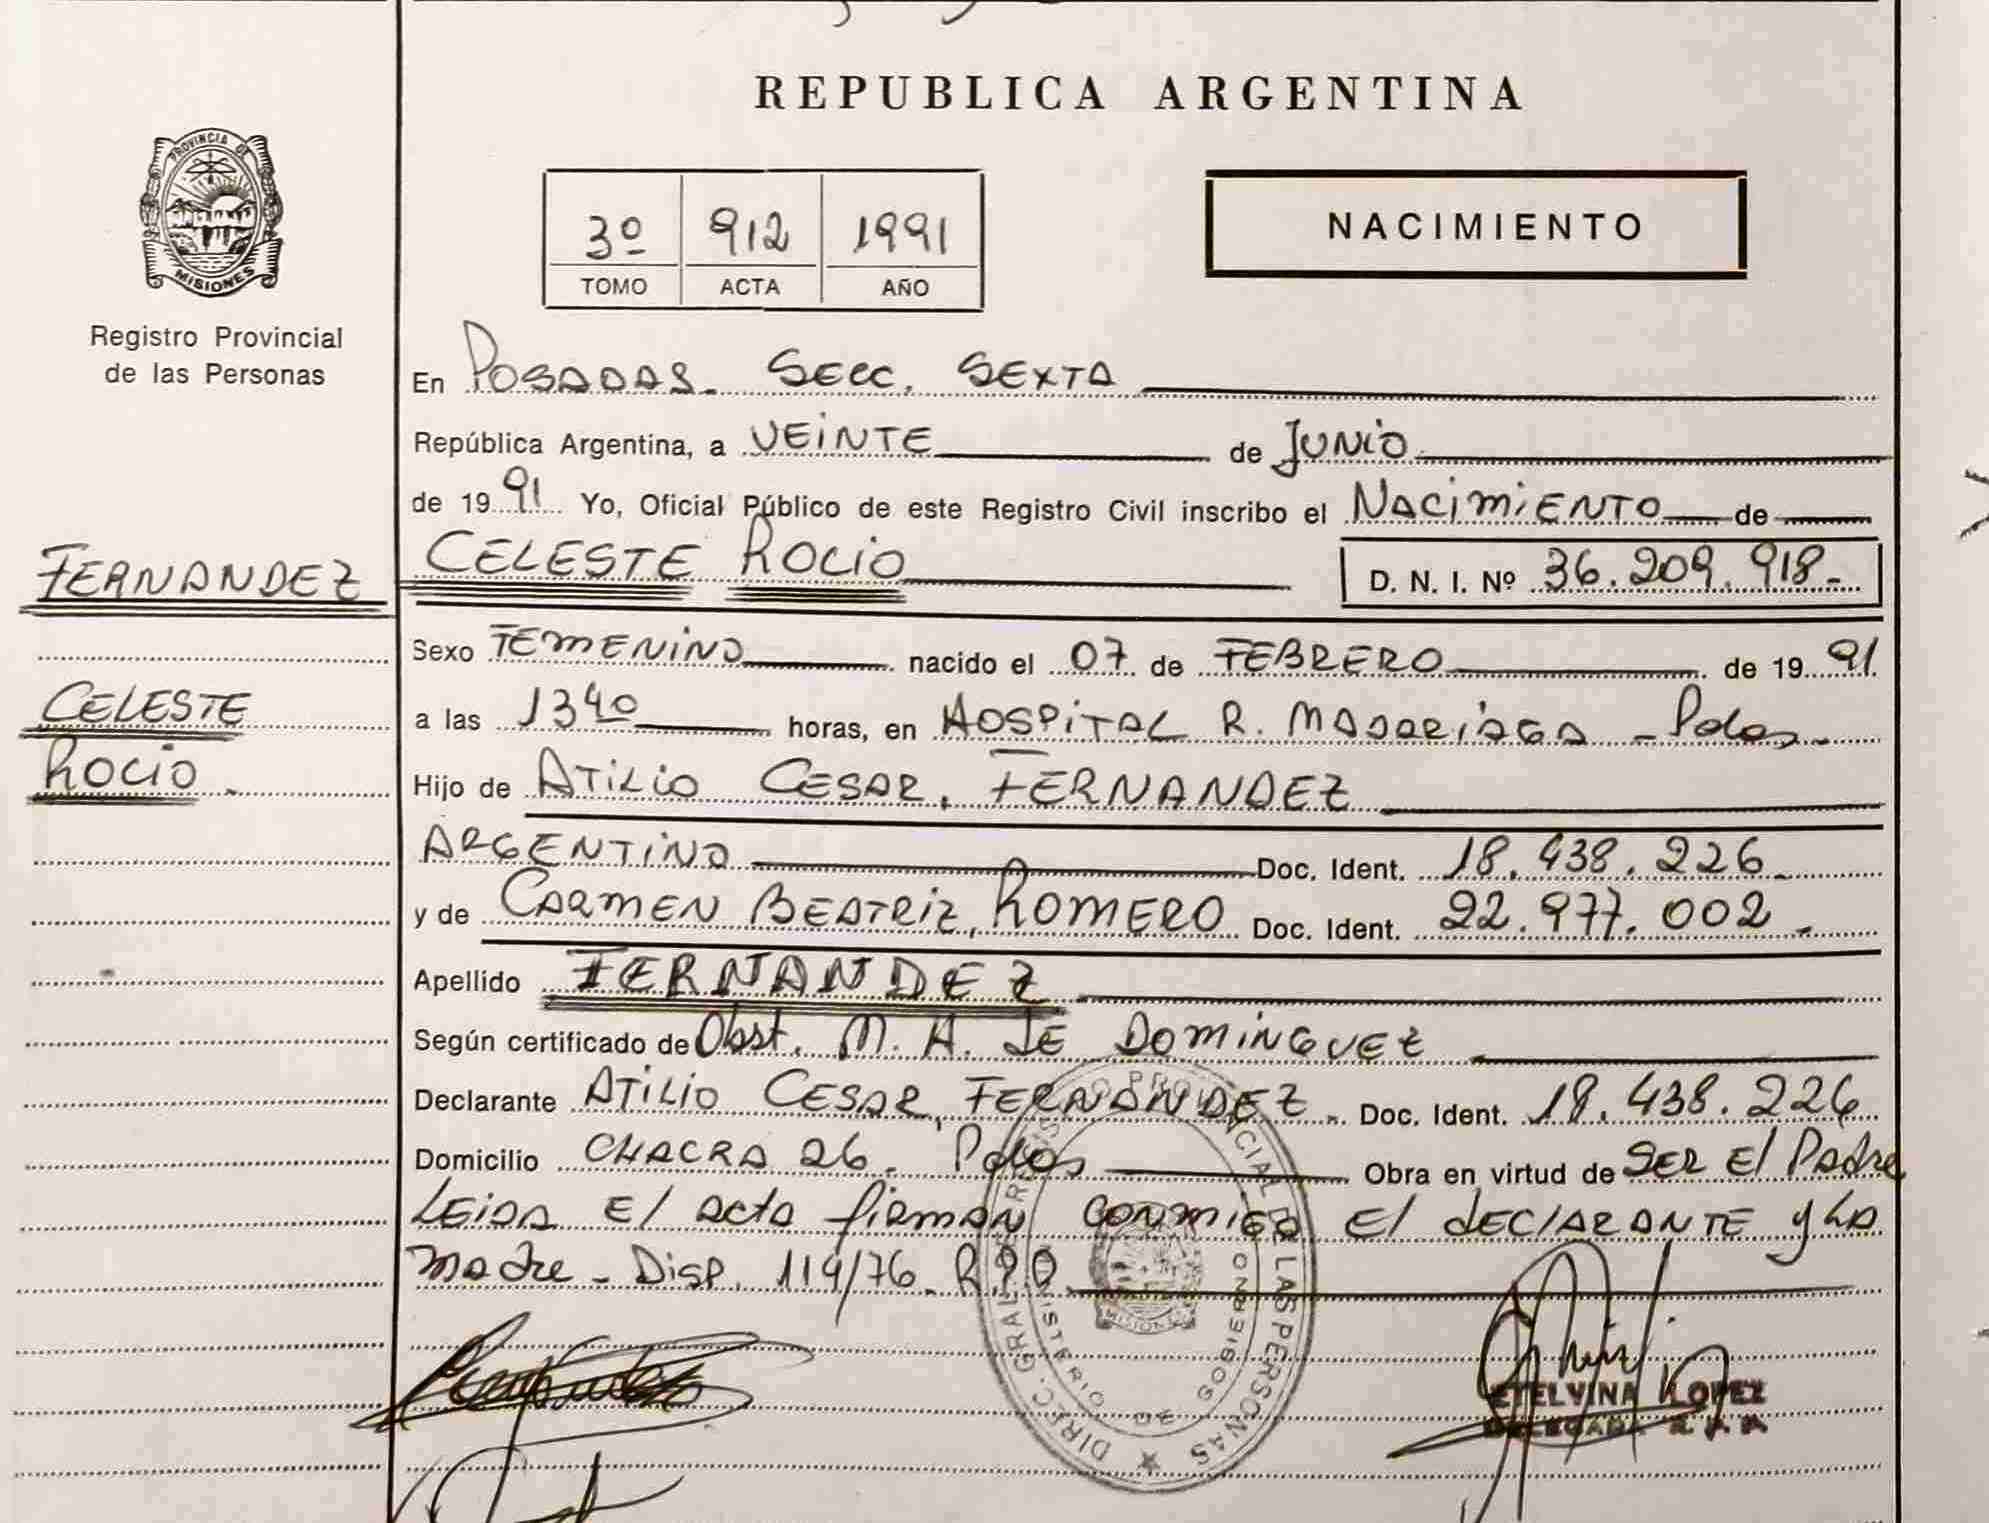 REPUBLICA ARGENTINA
PROVINCIA DE
MISIONES
Registro Provincial
de las Personas
3º 912 1991
TOMO ACTA AÑO
NACIMIENTO
En POSADAS. SECC. SEXTA
República Argentina, a VEINTE de JUNIO
de 1991 Yo, Oficial Público de este Registro Civil inscribo el NACIMIENTO de
FERNANDEZ
CELESTE ROCIO
D. N. I. Nº 36.209.918.-
Sexo FEMENINO nacido el 07 de FEBRERO de 1991.
CELESTE
ROCIO.
a las 13 40 horas, en HOSPITAL R. MADARIAGA - Pdas.
Hijo de ATILIO CESAR, FERNANDEZ
ARGENTINO Doc. Ident. 18.438.226.
y de CARMEN BEATRIZ, ROMERO Doc. Ident. 22.977.002.
Apellido FERNANDEZ
Según certificado de Obst. M. A. DE DOMINGUEZ
Declarante ATILIO CESAR, FERNANDEZ. Doc. Ident. 18.438.226
Domicilio CHACRA 26. Pdas Obra en virtud de SER El Padre
LEIDA El acta firman conmigo El dEClARANTE y LA
madre - Disp. 114/76. R.P.
DIREC. GRAL REGISTRO PROVINCIAL DE LAS PERSONAS
MINISTERIO DE GOBIERNO
MISIONES
ETELVINA LOPEZ
DELEGADA R.P.P.